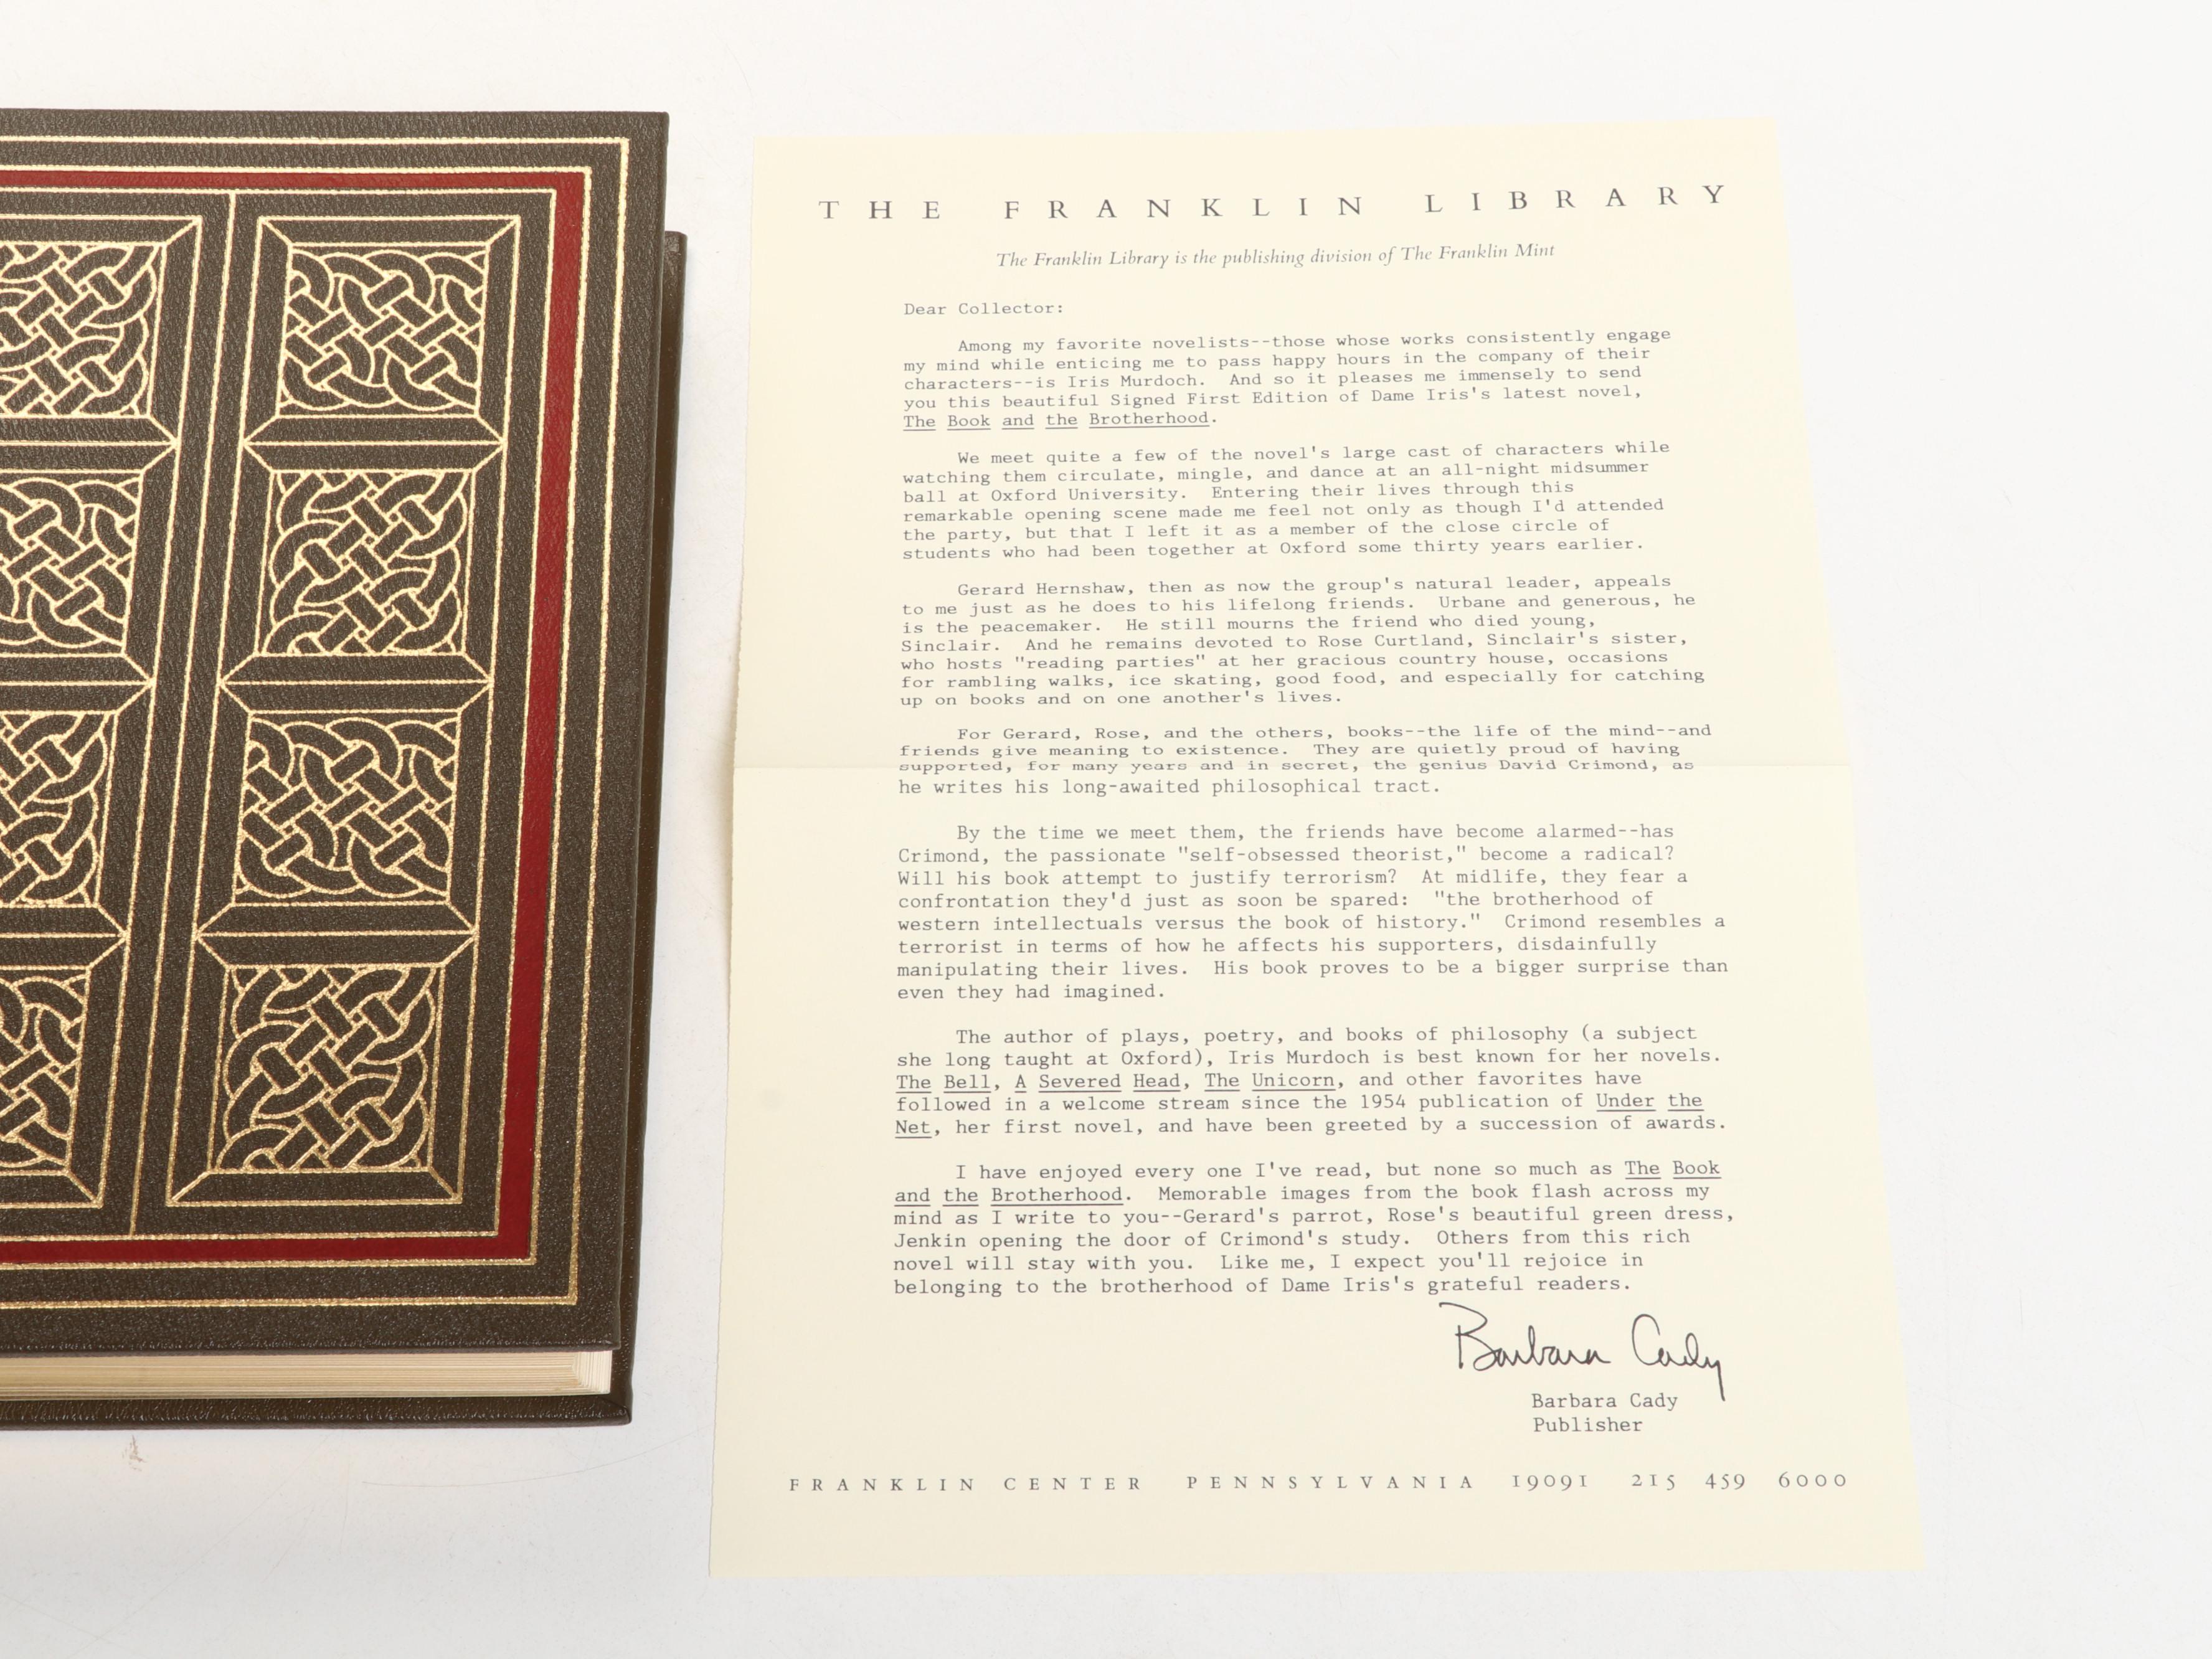 THE FRANKLIN LIBRARY
The Franklin Library is the publishing division of The Franklin Mint
Dear Collector:
Among my favorite novelists--those whose works consistently engage
my mind while enticing me to pass happy hours in the company of their
characters--is Iris Murdoch. And so it pleases me immensely to send
you this beautiful Signed First Edition of Dame Iris's latest novel,
The Book and the Brotherhood.
We meet quite a few of the novel's large cast of characters while
watching them circulate, mingle, and dance at an all-night midsummer
ball at Oxford University. Entering their lives through this
remarkable opening scene made me feel not only as though I'd attended
the party, but that I left it as a member of the close circle of
students who had been together at Oxford some thirty years earlier.
Gerard Hernshaw, then as now the group's natural leader, appeals
to me just as he does to his lifelong friends. Urbane and generous, he
is the peacemaker. He still mourns the friend who died young,
Sinclair. And he remains devoted to Rose Curtland, Sinclair's sister,
who hosts "reading parties" at her gracious country house, occasions
for rambling walks, ice skating, good food, and especially for catching
up on books and on one another's lives.
For Gerard, Rose, and the others, books--the life of the mind--and
friends give meaning to existence. They are quietly proud of having
supported, for many years and in secret, the genius David Crimond, as
he writes his long-awaited philosophical tract.
By the time we meet them, the friends have become alarmed--has
Crimond, the passionate "self-obsessed theorist," become a radical?
Will his book attempt to justify terrorism? At midlife, they fear a
confrontation they'd just as soon be spared: "the brotherhood of
western intellectuals versus the book of history." Crimond resembles a
terrorist in terms of how he affects his supporters, disdainfully
manipulating their lives. His book proves to be a bigger surprise than
even they had imagined.
The author of plays, poetry, and books of philosophy (a subject
she long taught at Oxford), Iris Murdoch is best known for her novels.
The Bell, A Severed Head, The Unicorn, and other favorites have
followed in a welcome stream since the 1954 publication of Under the
Net, her first novel, and have been greeted by a succession of awards.
I have enjoyed every one I've read, but none so much as The Book
and the Brotherhood. Memorable images from the book flash across my
mind as I write to you--Gerard's parrot, Rose's beautiful green dress,
Jenkin opening the door of Crimond's study. Others from this rich
novel will stay with you. Like me, I expect you'll rejoice in
belonging to the brotherhood of Dame Iris's grateful readers.
Barbara Cady
Barbara Cady
Publisher
FRANKLIN CENTER PENNSYLVANIA 19091 215 459 6000